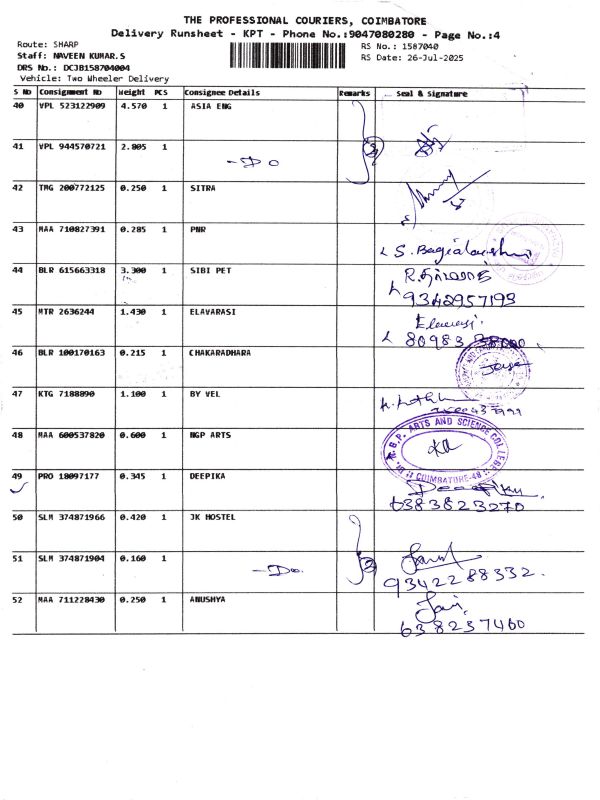 THE PROFESSIONAL COURIERS, COIMBATORE
Delivery Runsheet - KPT - Phone No.:9047080280 - Page No.:4
Route: SHARP
Staff: NAVEEN KUMAR.S
DRS No.: DCJB158704004
Vehicle: Two Wheeler Delivery
RS No.: 1587040
RS Date: 26-Jul-2025
S No Consignment No Weight PCS Consignee Details Remarks Seal & Signature
40 VPL 523122909 4.570 1 ASIA ENG
41 VPL 944570721 2.805 1
- Do
2
42 TMG 200772125 0.250 1 SITRA
43 MAA 710827391 0.285 1 PNR
S. Bagialakshmi
44 BLR 615663318 3.300 1 SIBI PET
9342957193
45 MTR 2636244 1.430 1 ELAVARASI
Elavarasi
80983
46 BLR 100170163 0.215 1 CHAKARADHARA
47 KTG 7188890 1.100 1 BY VEL
48 MAA 600537820 0.600 1 NGP ARTS
DR. N.G.P. ARTS AND SCIENCE COLLEGE
COIMBATORE-48
49 PRO 18097177 0.345 1 DEEPIKA
Deepika
6383823270
50 SLM 374871966 0.420 1 JK HOSTEL
51 SLM 374871904 0.160 1
- Do
2
9342288332.
52 MAA 711228430 0.250 1 ANUSHYA
638237460